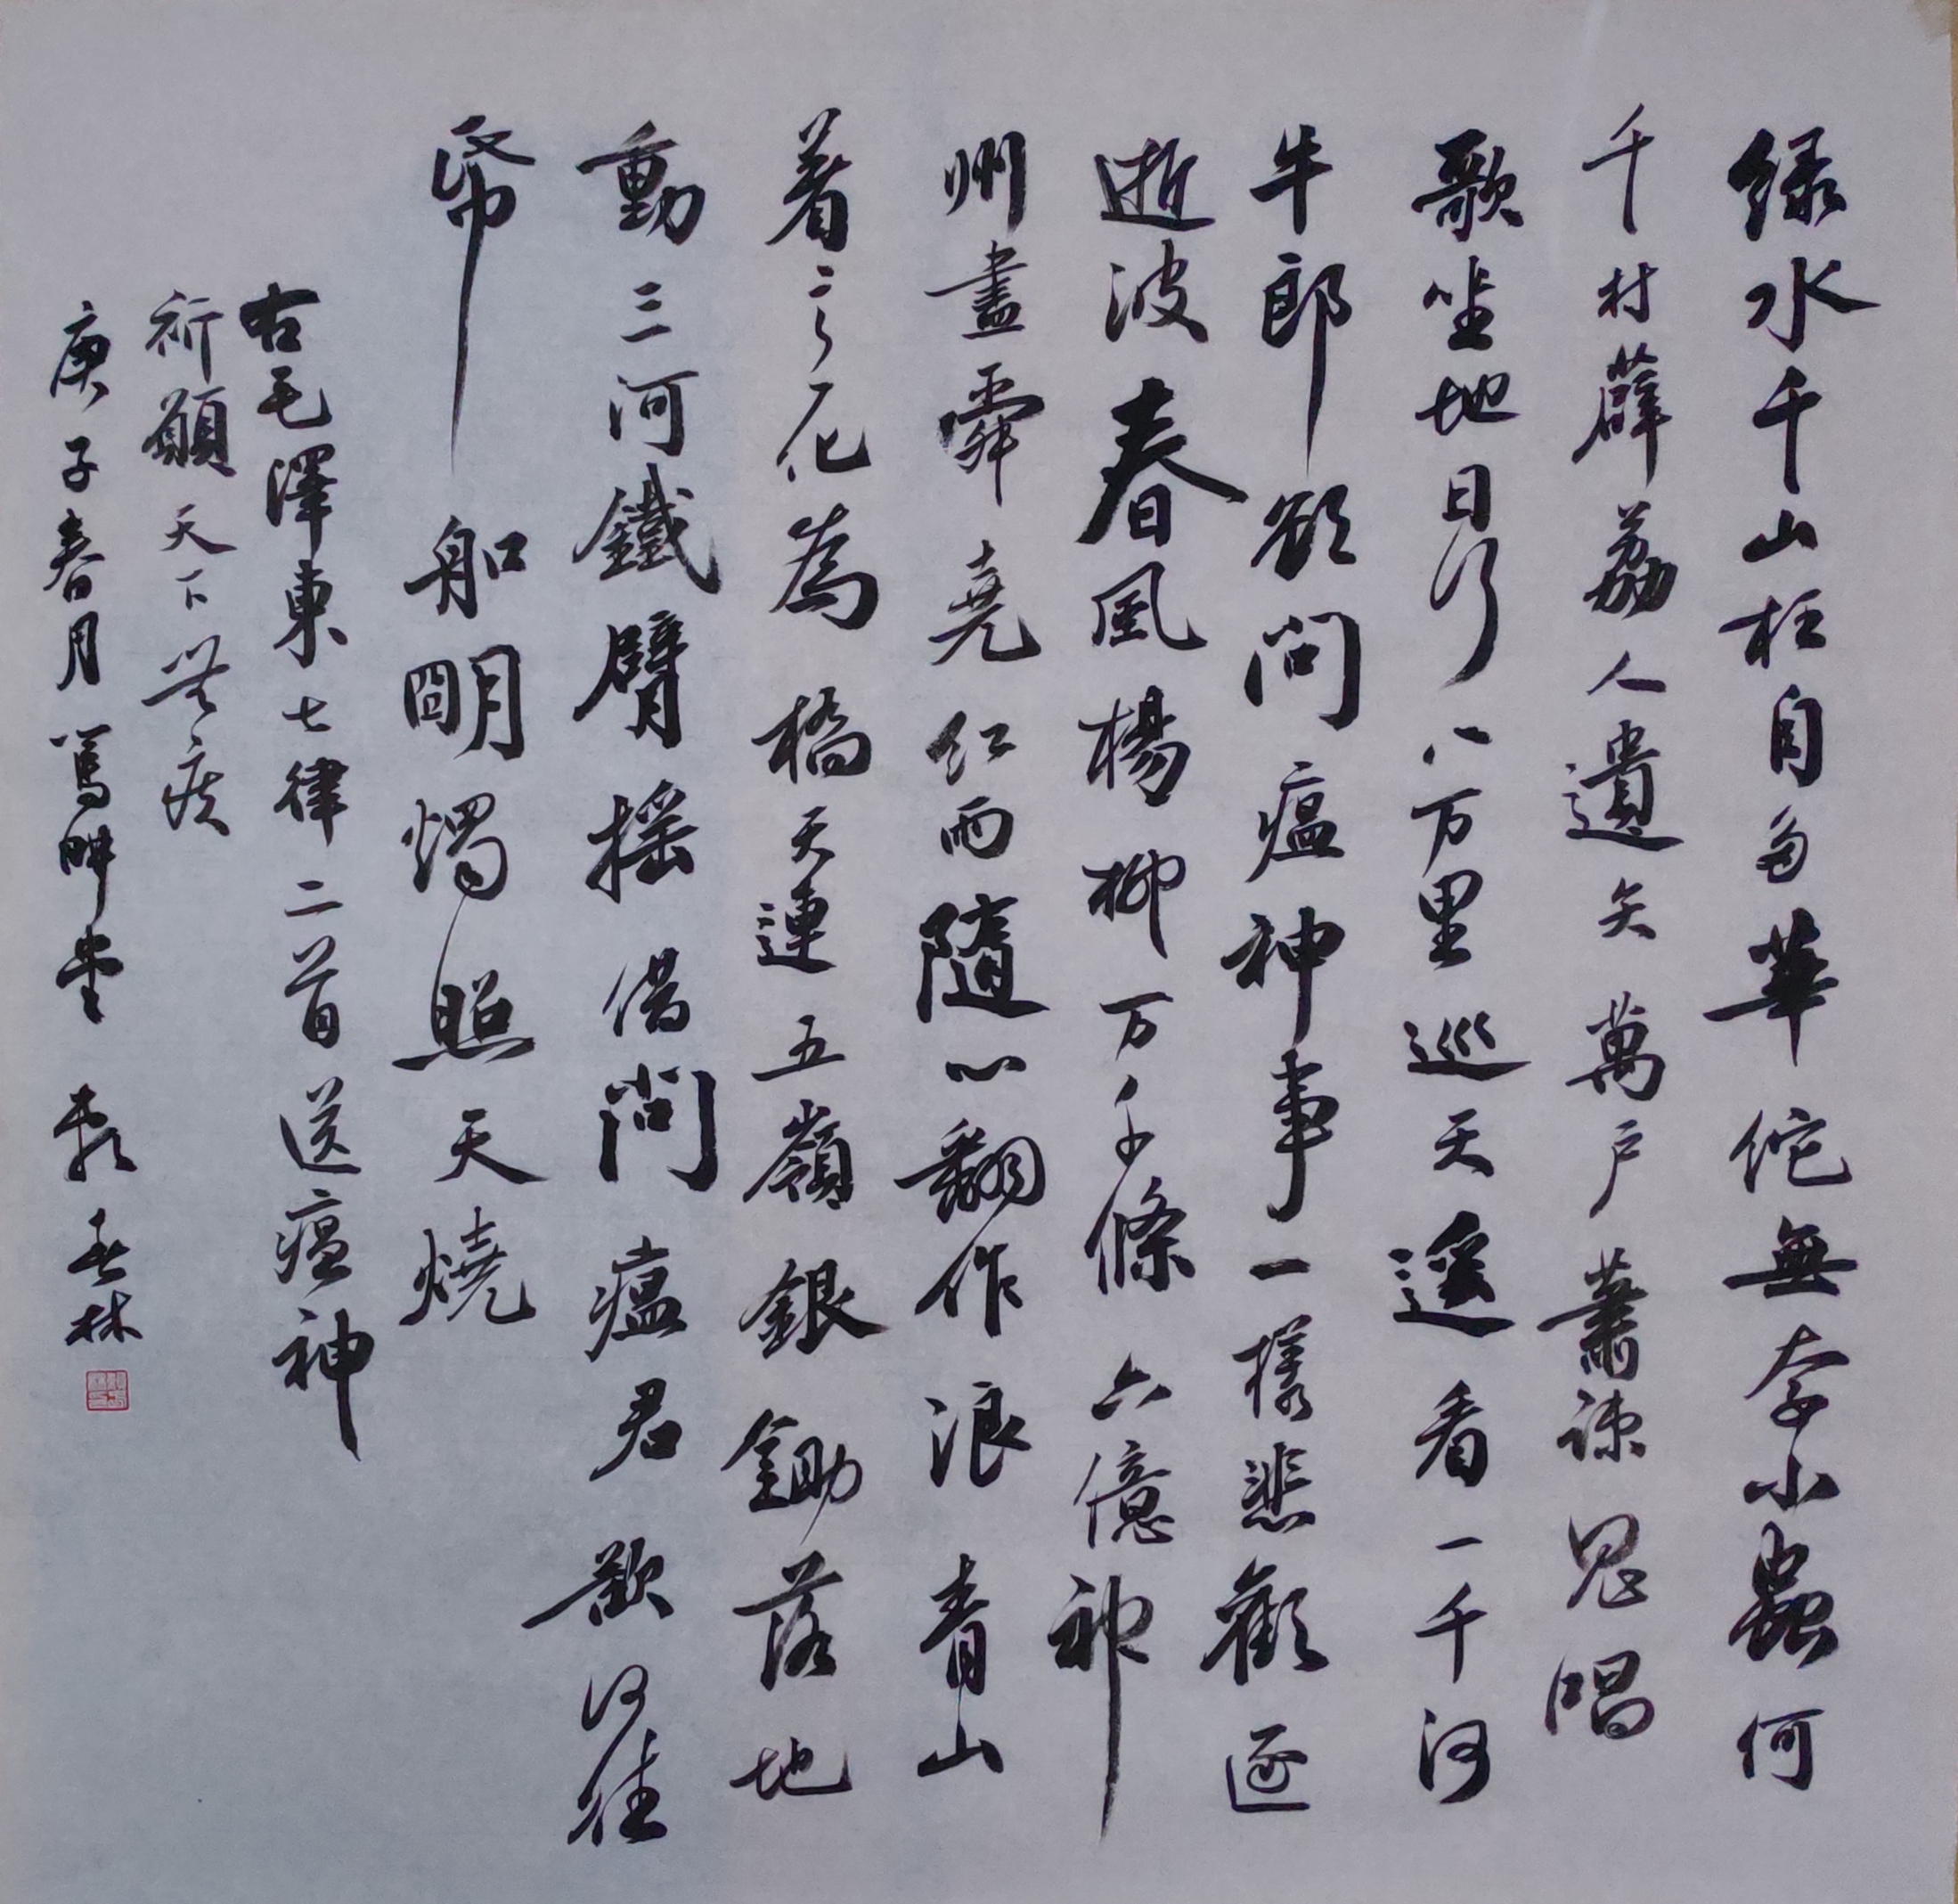 绿水千山枉自多華佗無奈小蟲何
千村薜荔人遺矢萬户蕭疎鬼唱
歌坐地日行八万里巡天遥看一千河
牛郎欲問瘟神事一樣悲歡逐
逝波春風楊柳万千條六億神
州盡舜堯红雨隨心翻作浪青山
着意化為橋天連五嶺銀鋤落地
動三河鐵臂摇借問瘟君欲何往
帋船朙燭照天燒
右毛澤東七律二首送瘟神
祈願天下無疾
庚子春月篤畊堂春林